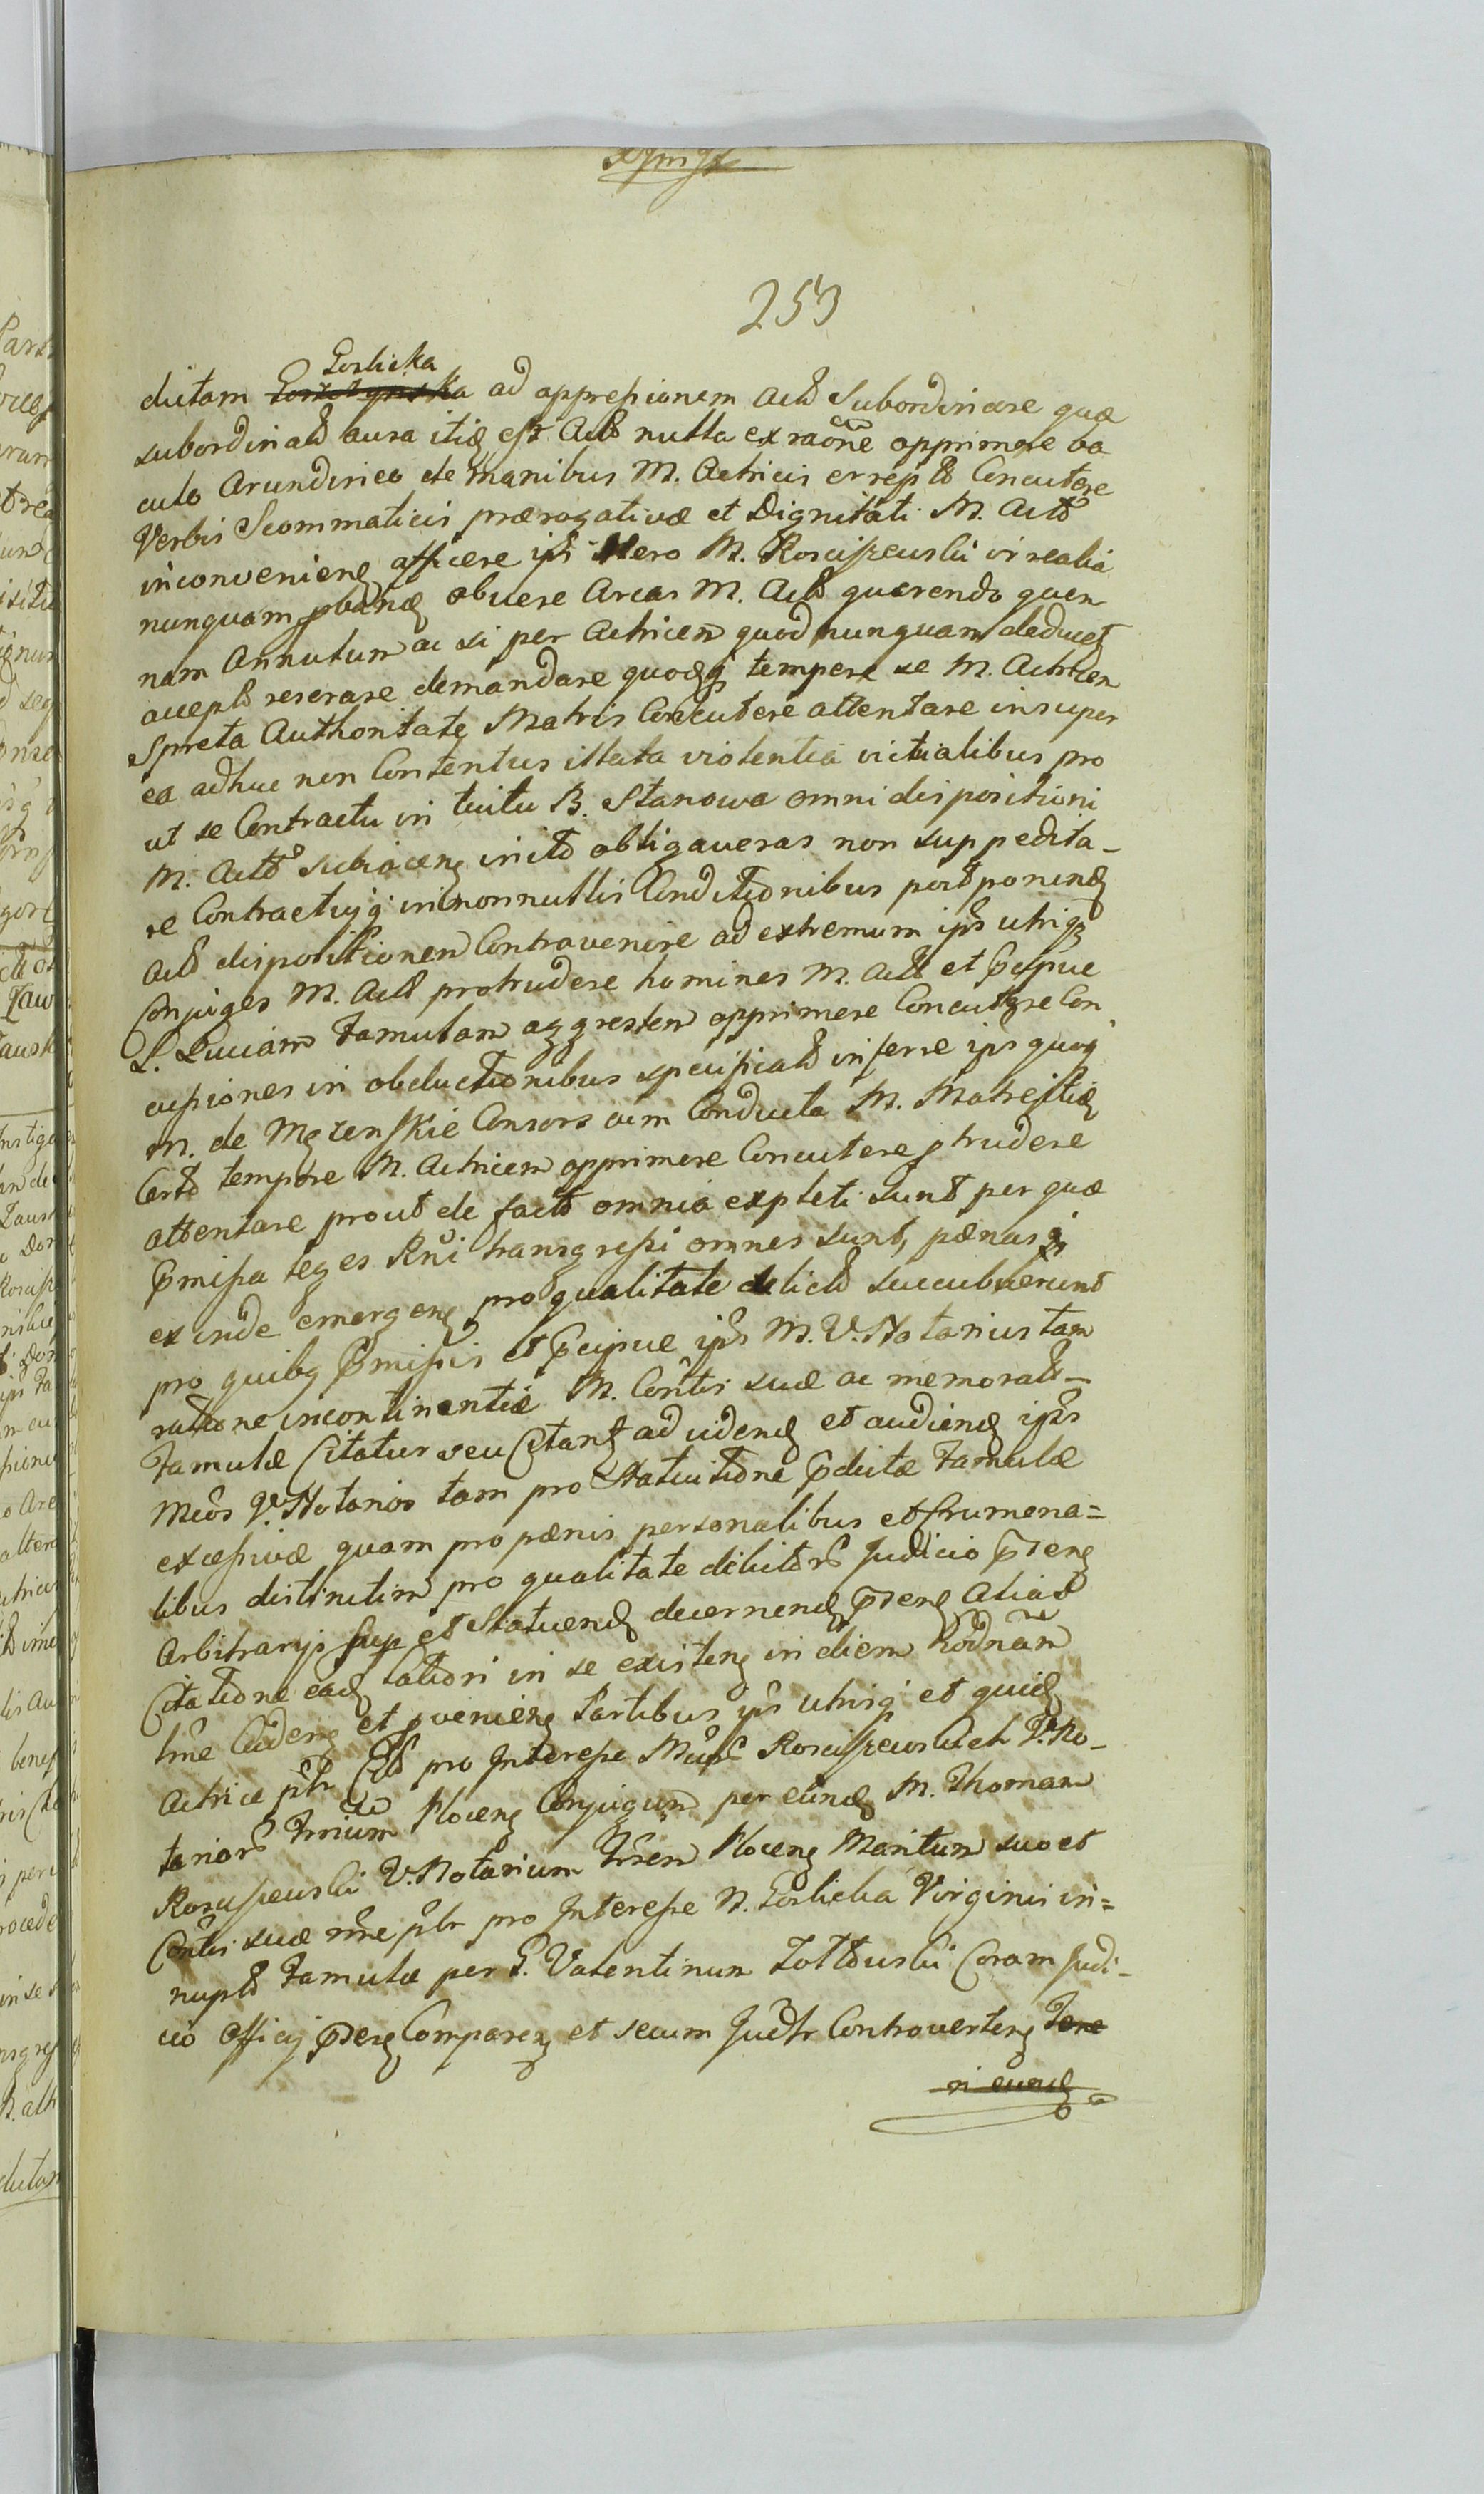 253
Gorlicka
dictam ad oppressionem Actô Subordinare quæ
subordinatô aura itiq est Actô nulla ex raône opprimere ba
culo Arundineo de manibus M. Actricis erreptô Concutere
Verbis Scommaticis prærogativæ et Dignitati M. Actô
inconvenienꝗ afficere ips Vero M. Rosciszewski in realia
nunquam obuere Arcas M. Actô quærendo quen
nam Annulum ac si per Actricem quod nunquam deducet
acceptô reserare demandare quoꝗ tempore se M. Actricem
Spreta Authoritate Matris Concutere attentare insuper
ea adhuc non Contentus illata violentia victualibus pro
ut se Contractu in tuitu B. Stanowa omni dispositioni
M. Actô Subjacenꝗ initô obligaveras non suppedita-
re Contractuiꝗ in nonnullis Conditionibus postponendꝗ
Actô dispositionem Contravenire ad extremum ips utriꝗ
Conjuges M. Actô protrudere homines M. Actô et Pcipue
L. Luciam Famulam aggresten opprimere Concutere Con
cussiones in obductionibus specificatô inferre ips quoꝗ
M. de Mężenskie Consors cum Conducta M. Matre
Certô tempore M. Actricem opprimere Concutere ptrudere
attentare prout de factô omnia expleti sunt per quæ
Pmissa leges Rñi transgressi omnes sunt, pænasꝗ
exinde emergenꝗ pro qualitate delictô succubuerunt
pro quibꝗ Pmissis et Pcipue ips M. V. Notarius tam
ratione incontinentiæ M. Côntis suæ ac memoratô-
Famulæ Citatur seu Citantꝗ ad uidendꝗ et audiendꝗ ipsos
Mcôs V. Notarios tam pro Statuitione Pdictæ Famulæ
excessivæ quam pro pænis personalibus et crumena=
libus distinctim pro qualitate debitorô Judicio Psenꝗ
Arbitrarys et Statuendꝗ decernendꝗ Psenꝗ Aliasô
Citatione eadꝗ latiori in se existenꝗ in diem hodnam
tme Cadenꝗ et pvenienꝗ Partibus ips utrisꝗ et quidꝗ
Actrice pltr Citô pro Interesse Mcorô Rosciszewskich V. No-
tariorô Trrium Plocenꝗ Conjugum per eundꝗ M. Thomam
Rosciszewski V. Notarium Trrem Plocenꝗ Maritum suo et
Côntis suæ nne pltr pro Interesse N. Gorlicka Virginis in=
nuptô Famulæ per G. Valentinum Zoltowski Coram Judi-
cio Officij Psenꝗ Comparenꝗ et secum Judtr Controvertenꝗ